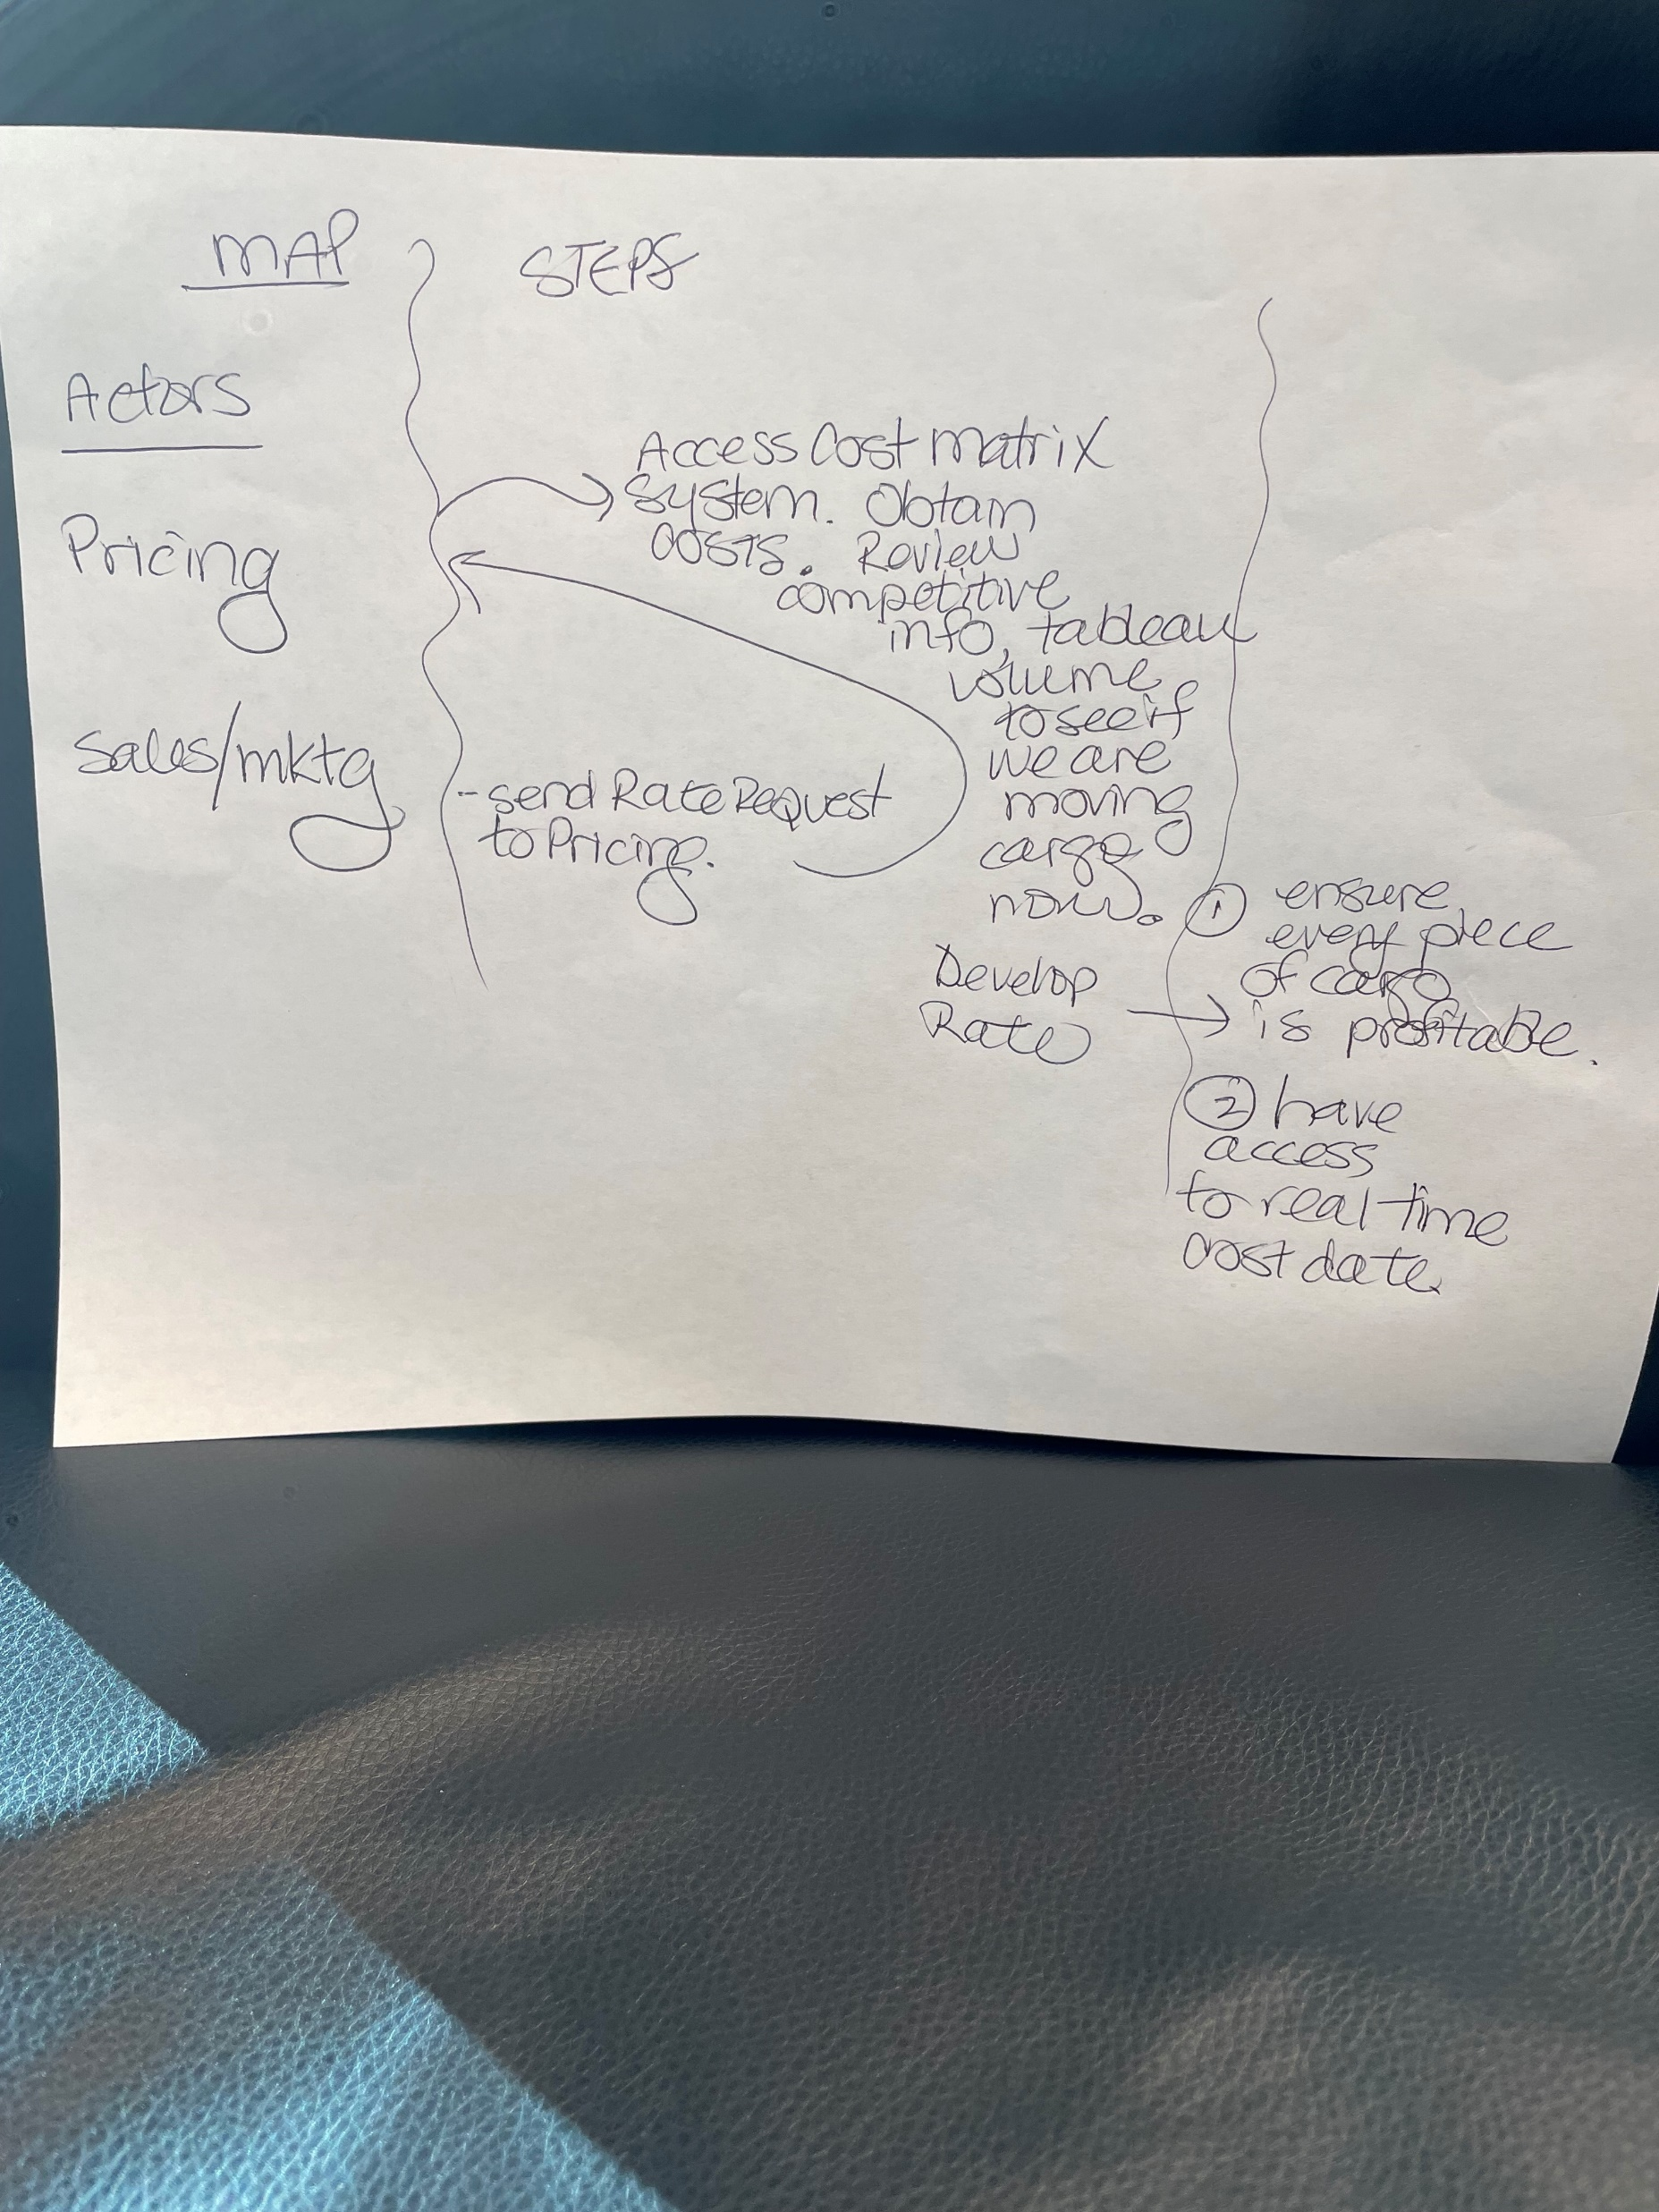 MAP
STEPS
Actors
Pricing
Sales/mktg
Access Cost Matrix
System. Obtain
Costs. Review
competitive
info, tableau
volume
to see if
we are
moving
cargo
now.
- send Rate Request
to Pricing.
Develop
Rate
① ensure
every piece
of cargo
is profitable.
② have
access
to real time
cost date.